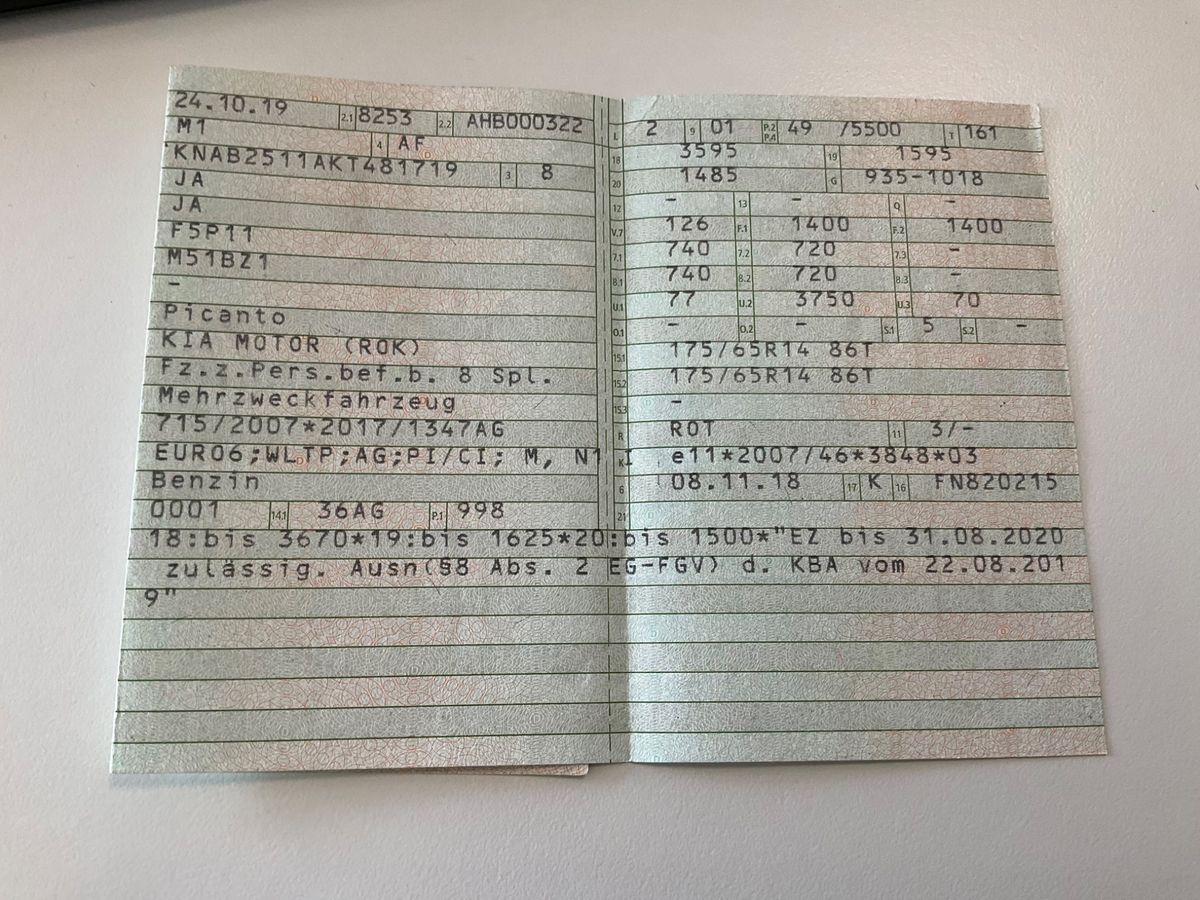 24.10.19 2.1 8253 2.2 AHB000322 L 2 9 01 P.2 P.4 49 /5500 T 161
M1 4 AF 18 3595 19 1595
KNAB2511AKT481719 3 8 20 1485 G 935-1018
JA 12 - 13 - Q -
JA V.7 126 F.1 1400 F.2 1400
F5P11 7.1 740 7.2 720 7.3 -
M51BZ1 8.1 740 8.2 720 8.3 -
- U.1 77 U.2 3750 U.3 70
Picanto O.1 - O.2 - S.1 5 S.2 -
KIA MOTOR (ROK) 15.1 175/65R14 86T
Fz.z.Pers.bef.b. 8 Spl. 15.2 175/65R14 86T
Mehrzweckfahrzeug 15.3 -
715/2007*2017/1347AG R ROT 11 3/-
EURO6;WLTP;AG;PI/CI; M, N1 I K e11*2007/46*3848*03
Benzin 6 08.11.18 17 K 16 FN820215
0001 14.1 36AG P.1 998 21
18:bis 3670*19:bis 1625*20:bis 1500*"EZ bis 31.08.2020
zulässig. Ausn(§8 Abs. 2 EG-FGV) d. KBA vom 22.08.201
9"